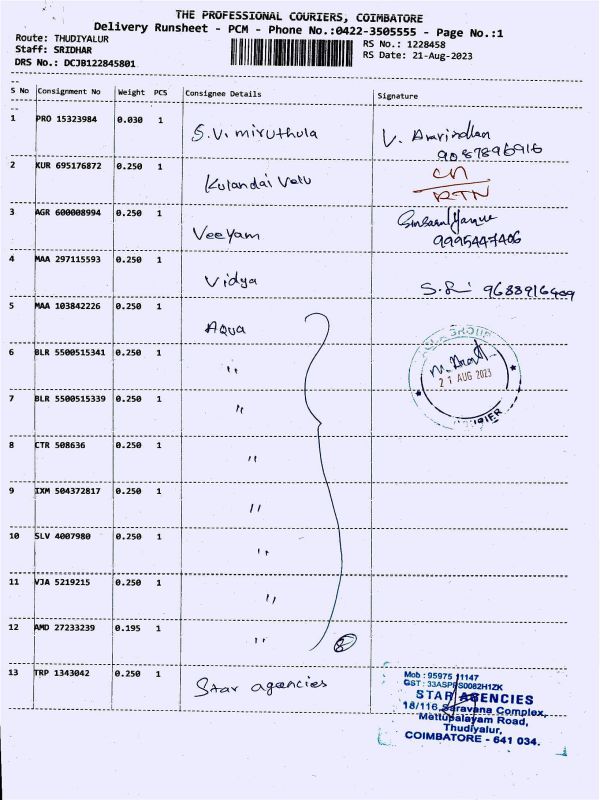 THE PROFESSIONAL COURIERS, COIMBATORE
Delivery Runsheet - PCM - Phone No.:0422-3505555 - Page No.:1
Route: THUDIYALUR
RS No.: 1228458
Staff: SRIDHAR
RS Date: 21-Aug-2023
DRS No.: DCJB122845801
S No Consignment No Weight PCS Consignee Details Signature
1 PRO 15323984 0.030 1 S.V. miruthula V. Aravindhan
9087896916
2 KUR 695176872 0.250 1 Kulandai Velu
RTN
3 AGR 600008994 0.250 1 Veeyam
9995447406
4 MAA 297115593 0.250 1 Vidya 9688916409
5 MAA 103842226 0.250 1 Aqua
6 BLR 5500515341 0.250 1 "
GROUP
21 AUG 2023
7 BLR 5500515339 0.250 1 "
8 CTR 508636 0.250 1 "
9 IXM 504372817 0.250 1 "
10 SLV 4007980 0.250 1 "
11 VJA 5219215 0.250 1 "
12 AMD 27233239 0.195 1 " 8
13 TRP 1343042 0.250 1 Star agencies
Mob : 95975 11147
GST : 33ASPRS0082H1ZK
STAR AGENCIES
18/116, Saravana Complex,
Mettupalayam Road,
Thudiyalur,
COIMBATORE - 641 034.